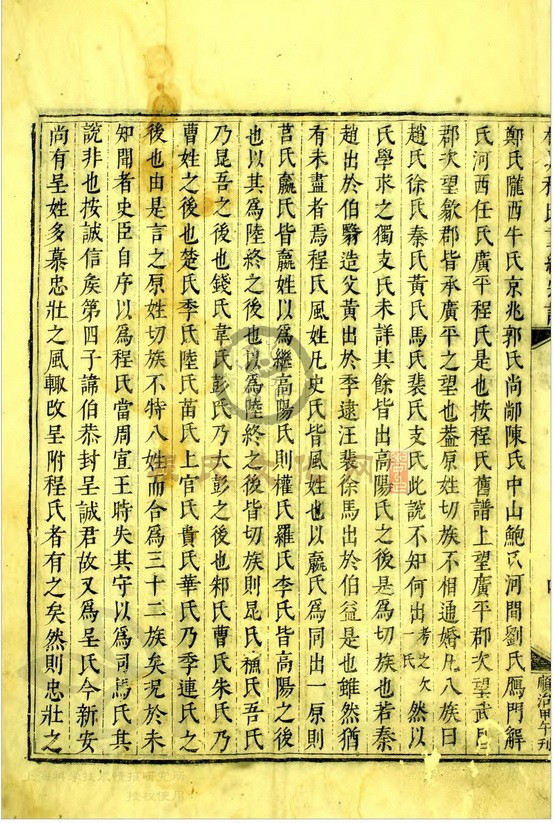 鄭氏隴西牛氏京兆郭氏尚鄗陳氏中山鮑氏河間劉氏鴈門解
氏河西任氏廣平程氏是也按程氏舊譜上望廣平郡次望武
郡次望歙郡皆承廣平之望也蓋原姓切族不相通婚凡八族曰
趙氏徐氏秦氏黃氏馬氏裴氏支氏此說不知何出考之欠一氏然以
氏學求之獨支氏未詳其餘皆出高陽氏之後是為切族也若秦
趙出於伯翳造父黃出於季逮汪裴徐馬出於伯益是也雖然猶
有未盡者焉程氏風姓凡史氏皆風姓也以嬴氏為同出一原則
莒氏嬴氏皆嬴姓以為繼高陽氏則權氏羅氏李氏皆高陽之後
也以其為陸終之後也以為陸終之後皆切族則昆氏氏吾氏
乃昆吾之後也錢氏韋氏彭氏乃大彭之後也邾氏曹氏朱氏乃
曹姓之後也楚氏季氏陸氏苗氏上官氏貴氏華氏乃季連氏之
後也由是言之原姓切族不特八姓而合為三十二族矣况於未
知聞者史臣自序以為程氏當周宣王時失其守以為司馬氏其
說非也按誠信矦第四子諱伯恭封呈誠君故又為呈氏今新安
尚有呈姓多慕忠壯之風輙改呈附程氏者有之矣然則忠壯之
順治甲午刊